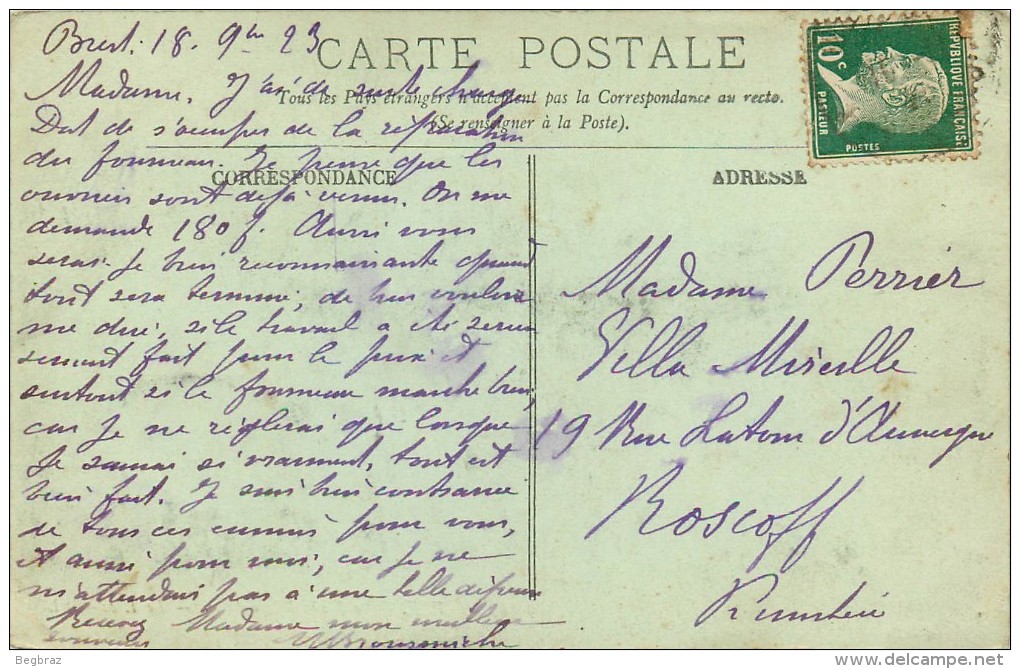 Brest. 18. 9bre 23
CARTE POSTALE
Madame, J'ai de suite
Tous les Pays étrangers n'acceptent pas la Correspondance au recto.
(Se renseigner à la Poste).
de s'occuper de la réparation
du fourneau. Je pense que les
CORRESPONDANCE
ouvriers sont déjà venus. On me
demande 180 f. Aussi vous
serai-je bien reconnaissante quand
tout sera terminé, de bien vouloir
me dire, si le travail a été sérieu
sement fait pour le prix et
surtout si le fourneau marche bien,
car je ne règlerai que lorsque
je saurai si vraiment, tout est
bien fait. Je suis bien
de tous ces ennuis pour vous,
et aussi pour moi, car je ne
m'attendais pas à une telle dépense
Recevez Madame mon meilleur
souvenir
10c
REPUBLIQUE FRANÇAISE
PASTEUR
POSTES
ADRESSE
Madame Perrier
Villa Mireille
19 Rue Latour d'Auvergne
Roscoff
Finistère
Begbraz
www.delcampe.net